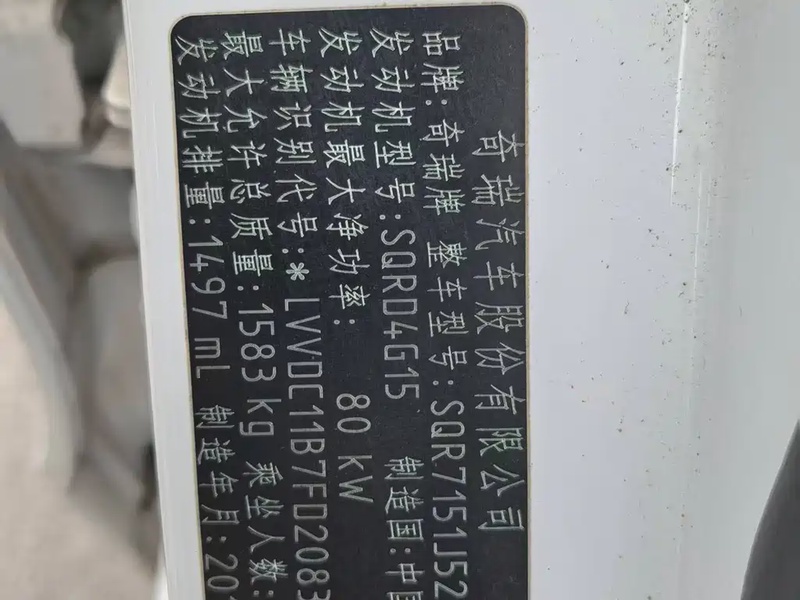 奇瑞汽车股份有限公司
品牌:奇瑞牌 整车型号:SQR7151J52
发动机型号:SQRD4G15 制造国:中国
发动机最大净功率: 80 kW
车辆识别代号:* LVVDC11B7FD2083
最大允许总质量:1583 kg 乘坐人数:
发动机排量:1497 ml 制造年月:20